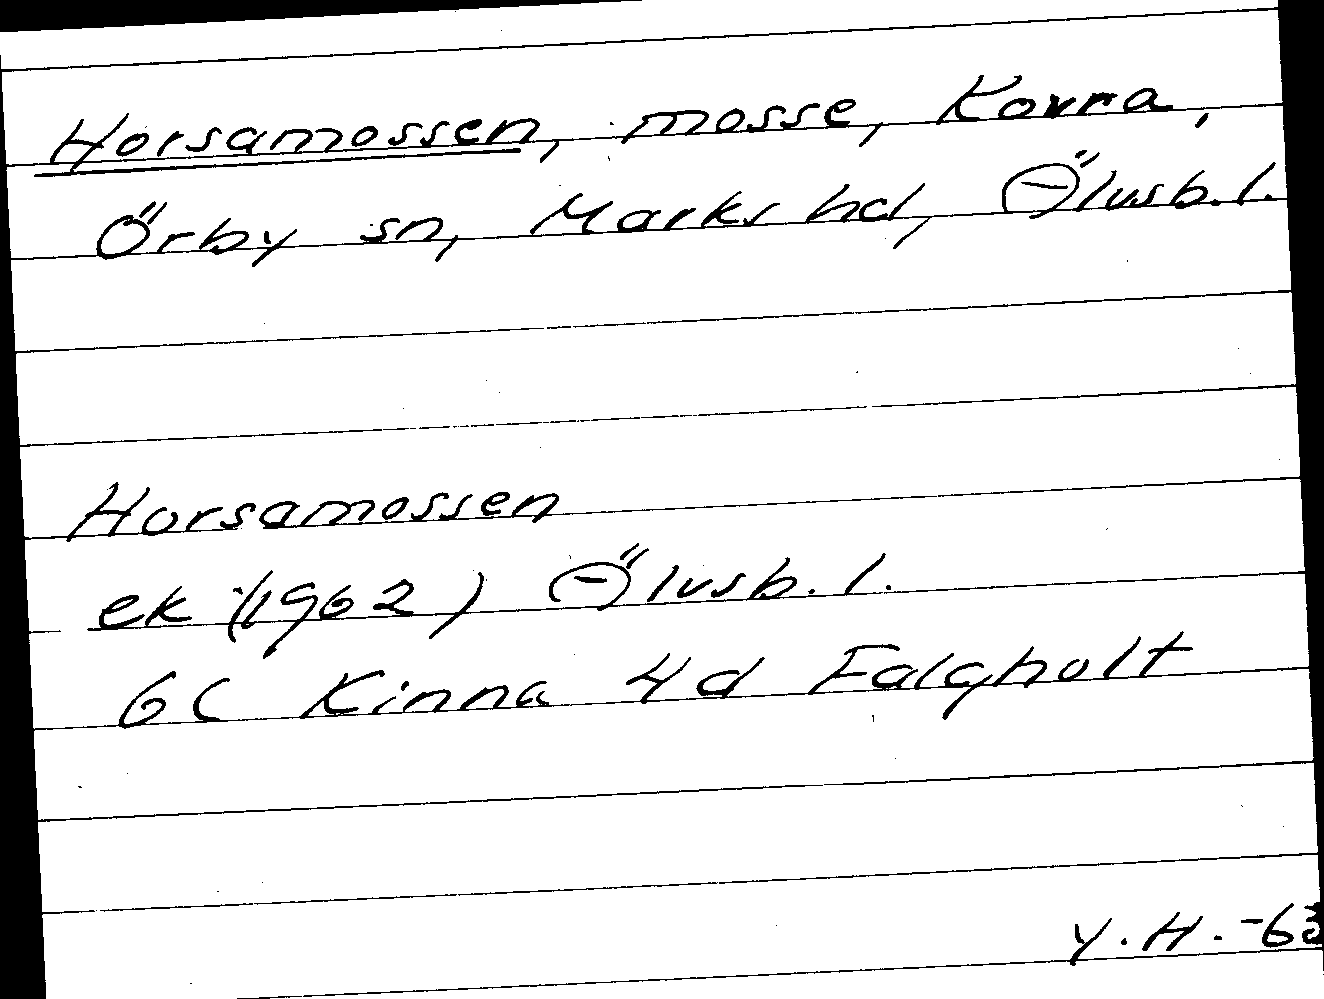 Horsamossen, mosse, Kovra,
Örby sn, Marks hd, Älvsb.l.
Horsamossen
ek (1962) Älvsb.l.
6C Kinna 4d Falgholt
Y.H.-63